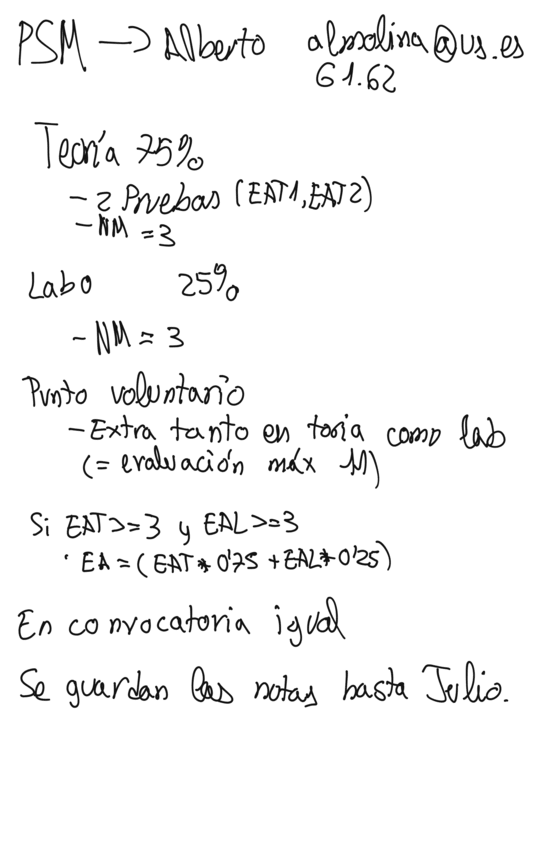 PSM -> Alberto almolina@us.es
G1.62
Teoría 75%
- 2 Pruebas (EAT1, EAT2)
- NM = 3
Labo 25%
- NM = 3
Punto voluntario
- Extra tanto en toria como lab
(= evaluación máx 11)
Si EAT>=3 y EAL>=3
· EA = (EAT * 0'75 + EAL * 0'25)
En convocatoria igual
Se guardan las notas hasta Julio.